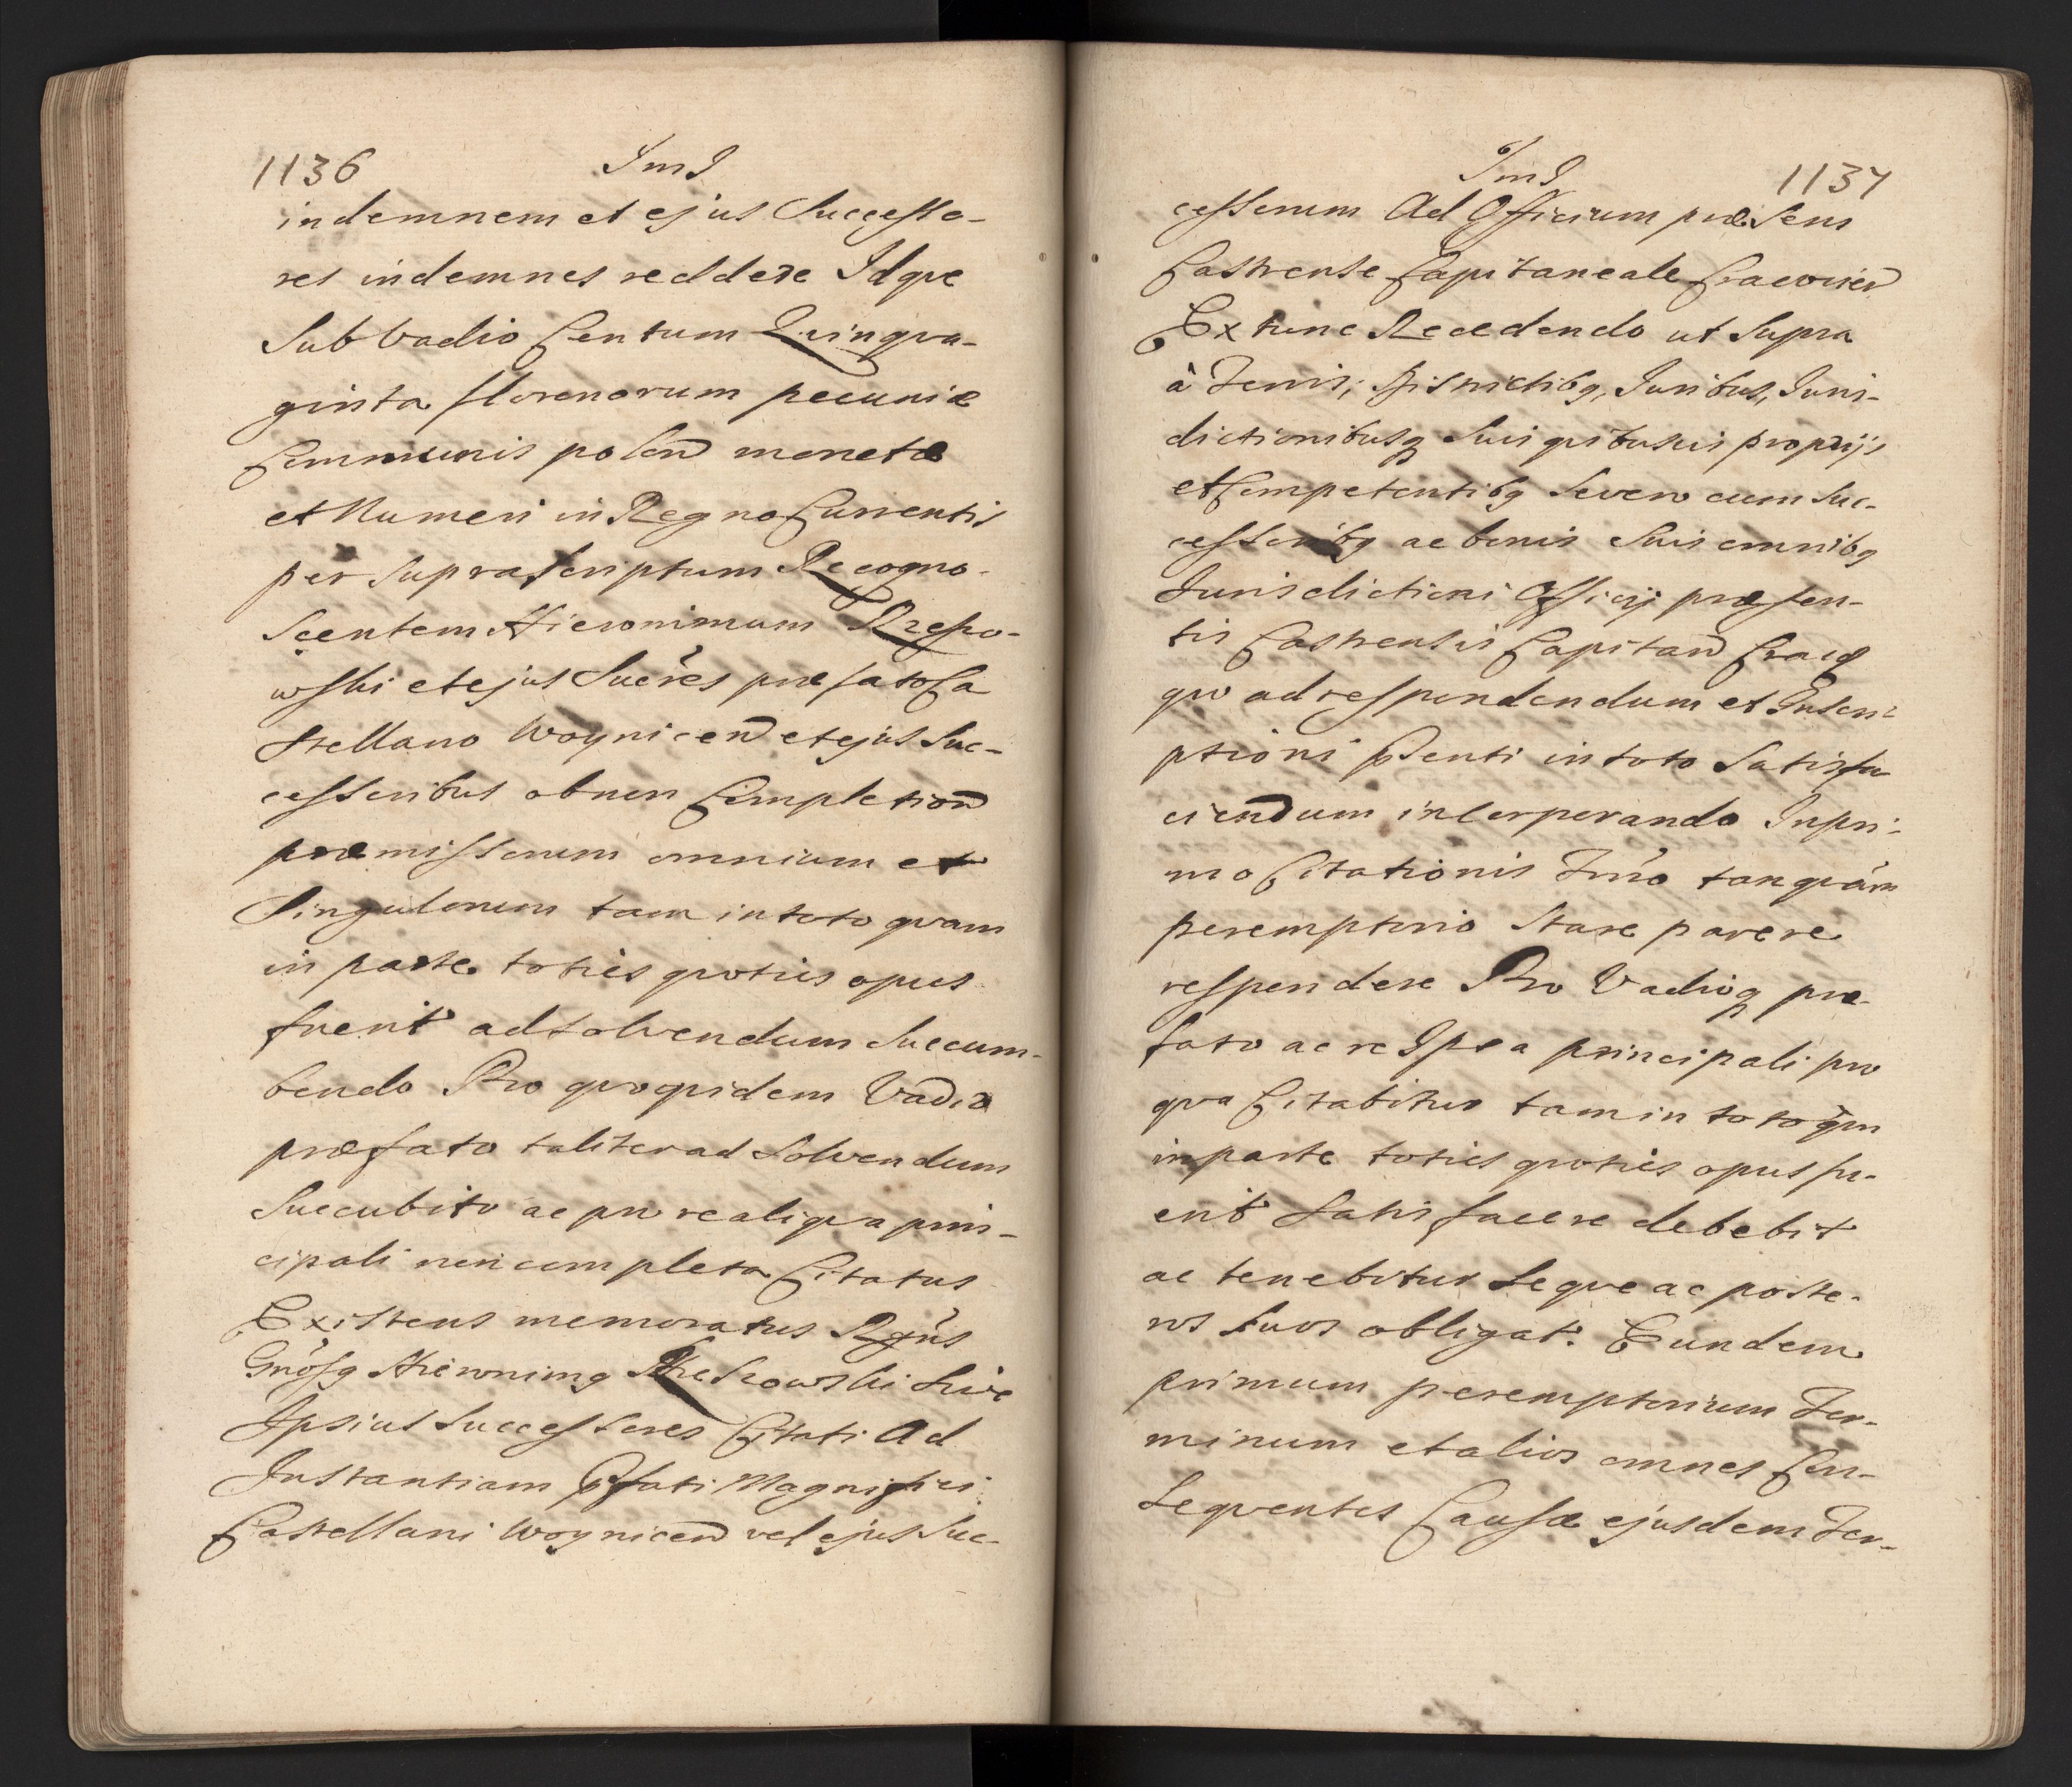 1136
indemnem et ejus Successo-
res indemnes reddere Idque
Sub Vadio Centum Quinqua-
ginta florenorum pecuniæ
Communis polon monetæ
et Numeri in Regno Currentis
per Suprascriptum Recogno-
Scentem Hieronimum Rzepo-
wski et ejus Sucères præfato Ca
stellano Woynicen et ejus Suc-
cessoribus ob non Completion
præmissorum omnium et
Singulorum tam in toto quam
in parte toties quoties opus
fuerit ad solvendum Succum-
bendo Pro quoquidem Vadio
præfato taliter ad Solvendum
Succubito ac pro re aliqua prin-
cipali non completa Citatus
Existens memoratus Rgñs
Gnõsg Hieronimg Rzeszowski Sive
Ipsius Successores Citati Ad
Instantiam Pfati Magnifici
Castellani Woynicen vel ejus Suc-
1137
cessorum Ad Officium præsens
Castrense Capitaneale Cracovien
Extunc Recedendo ut Supra
à Terris, Districtibg, Juribus, Juris-
dictionibusq Suis quibusvis proprijs
et Competentibg Severo cum Suc-
cessoribg ac bonis Suis omnibg
Jurisdictioni Officij præsen-
tis Castrensis Capitan Crac
quo ad respondendum et Inscri-
ptioni pSenti in toto Satisfa
ciendum incorporando In pri-
mo Citationis Trño tanquàm
peremptorio Stare parere
respondere Pro Vadioq præ-
fato ac re Ipsa principali pro
qua Citabitur tam in toto qm
in parte toties quoties opus fu-
erit Satisfacere debebit
ac tenebitur Seque ac poste-
ros Suos obligat. Eundem
primum peremptorium Ter-
minum et alios omnes Con-
Sequentes Causæ ejusdem Ter-